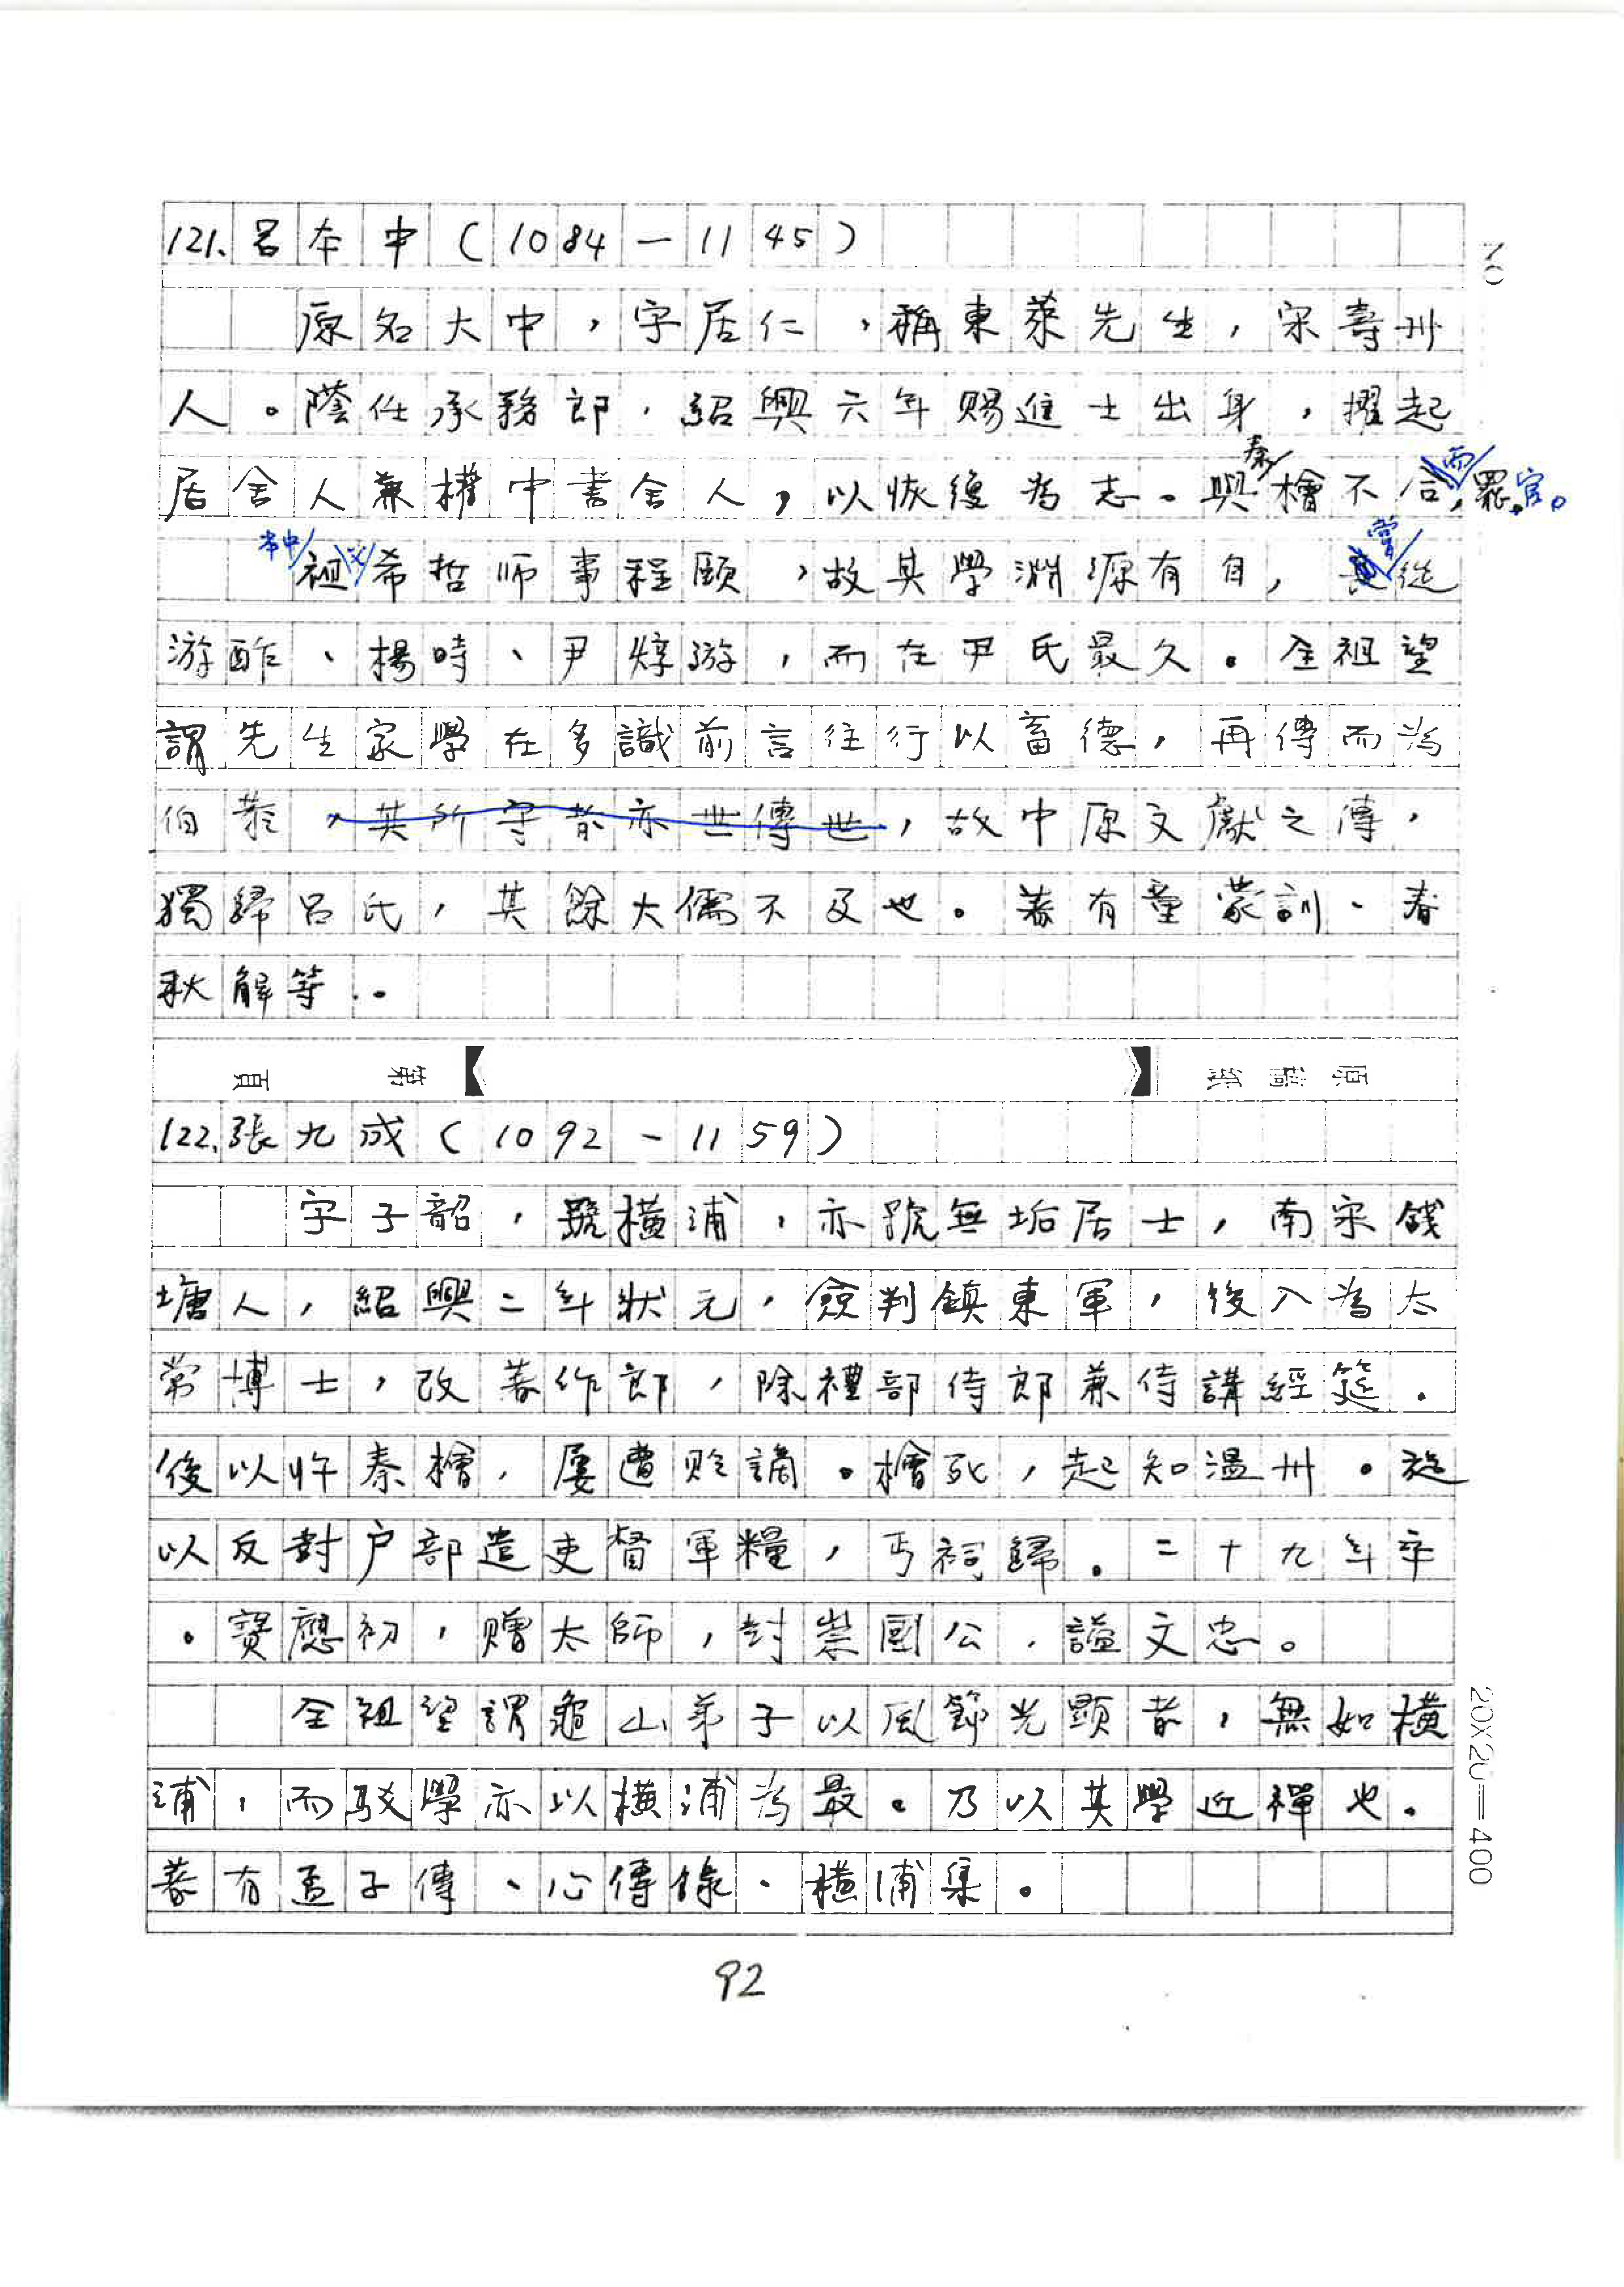 121.呂本中(1084-1145)
原名大中,字居仁,稱東萊先生,宋壽州
人。蔭任承務郎,紹興六年賜進士出身,擢起
居舍人兼權中書舍人,以恢復為志。與秦檜不合,而罷官。
本中祖父希哲師事程頤,故其學淵源有自,嘗從
游酢、楊時、尹焞游,而在尹氏最久。全祖望
謂先生家學在多識前言往行以畜德,再傳而為
伯恭,其所守者亦世傳世,故中原文獻之傳,
獨歸呂氏,其餘大儒不及也。著有童蒙訓、春
秋解等。
頁 第 原稿紙
122.張九成(1092-1159)
字子韶,號橫浦,亦號無垢居士,南宋錢
塘人,紹興二年狀元,僉判鎮東軍,後入為太
常博士,改著作郎,除禮部侍郎兼侍講經筵.
後以忤秦檜,屢遭貶謫。檜死,起知溫州。旋
以反對戶部遣吏督軍糧,丐祠歸.二十九年卒
。寶應初,贈太師,封崇國公,謚文忠。
全祖望謂龜山弟子以風節光顯者,無如橫
浦,而駁學亦以橫浦為最。乃以其學近禪也。
著有孟子傳、心傳錄、橫浦集。
NO
20X20=400
92